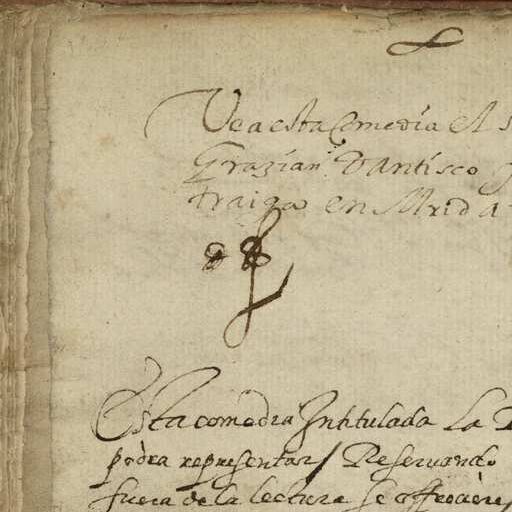 Vea esta Comedia el s
Grazian Dantisco
traiga en Mrid A
Esta comedia Intitulada La
podra representar Reservando
fuera de la lectura se ofreciere